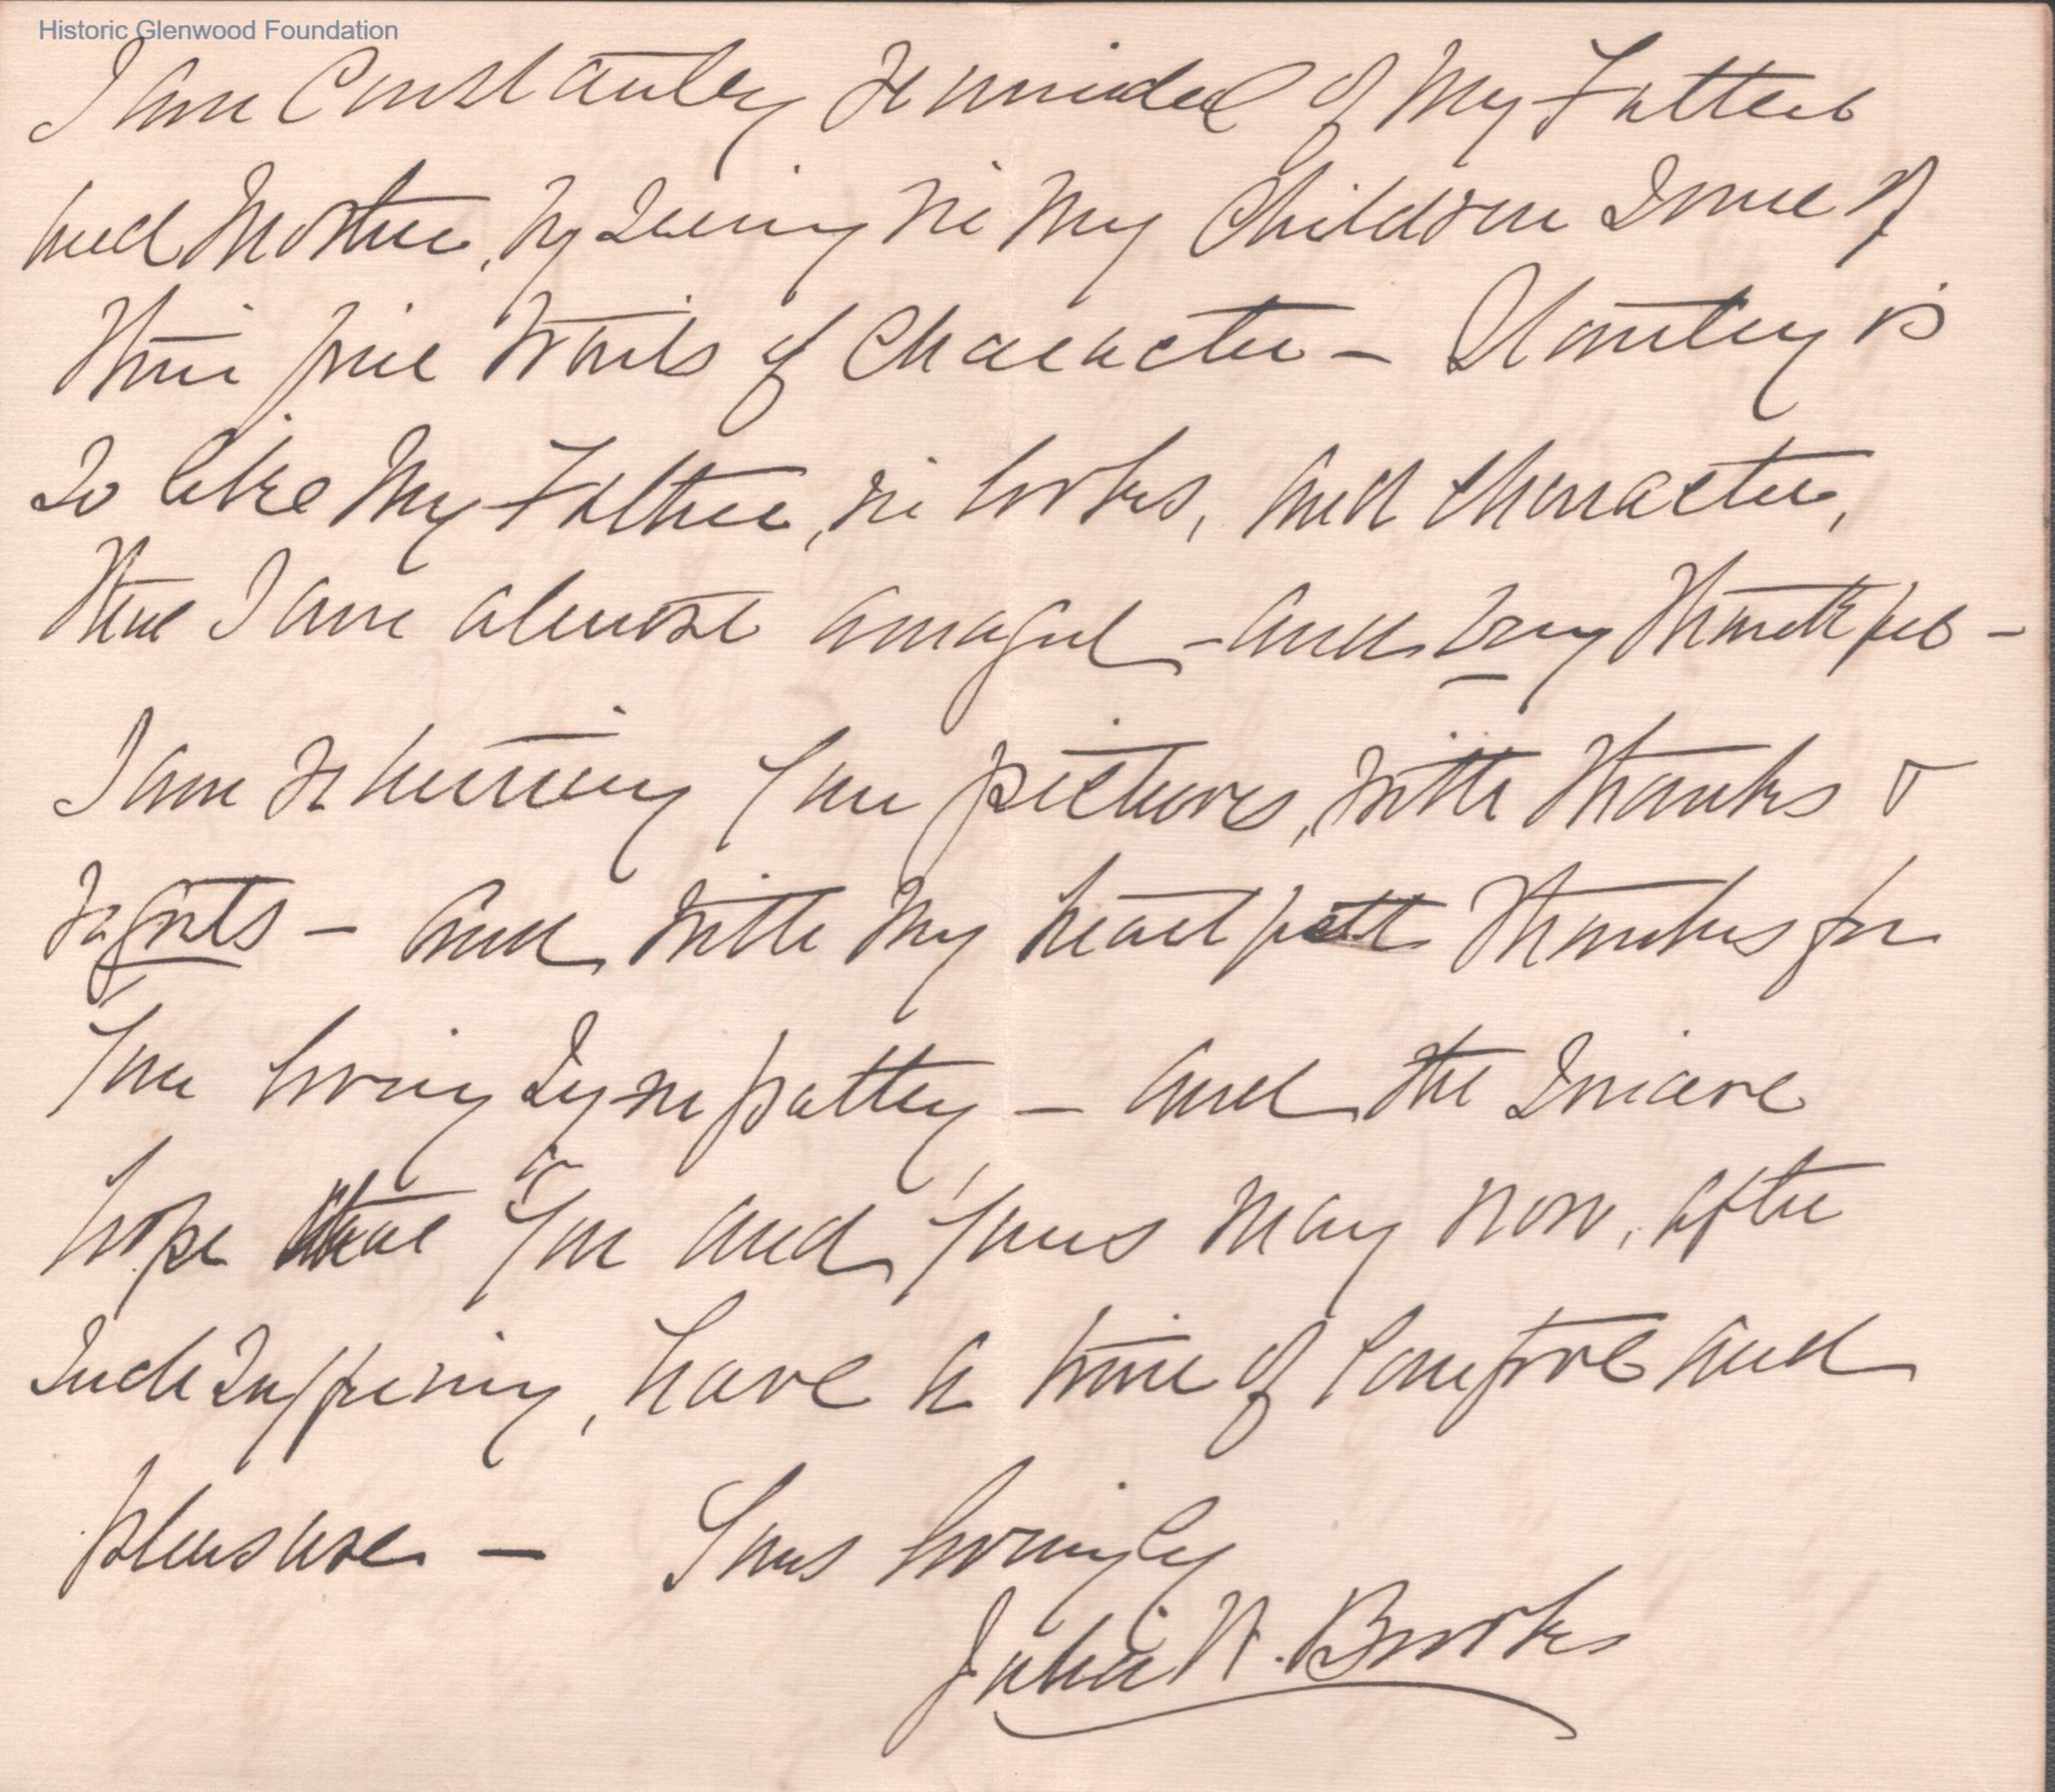 Historic Glenwood Foundation
I am Constantly reminded of My Father
and Mother, by seeing in My Children Some of
their fine traits of Character – Stanley is
So like My Father, in looks, and character,
that I am almost amazed – and very thankful –
I am returning Your pictures, with thanks &
regrets – and with My heartfelt thanks for
Your loving Sympathy – and the Sincere
hope that You and Yours May now, after
Such Suffering, have a time of Comfort and
pleasure – Yours lovingly
Julia N. Brooks